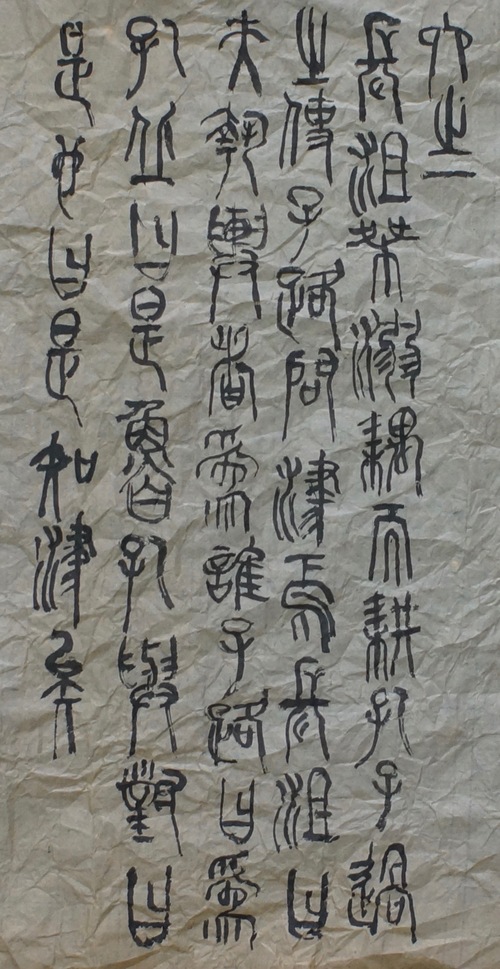 六之一
長沮桀溺耦而耕孔子過
之使子路問津焉長沮曰
夫執輿者為誰子路曰為
孔丘曰是魯孔與對曰
是也曰是知津矣